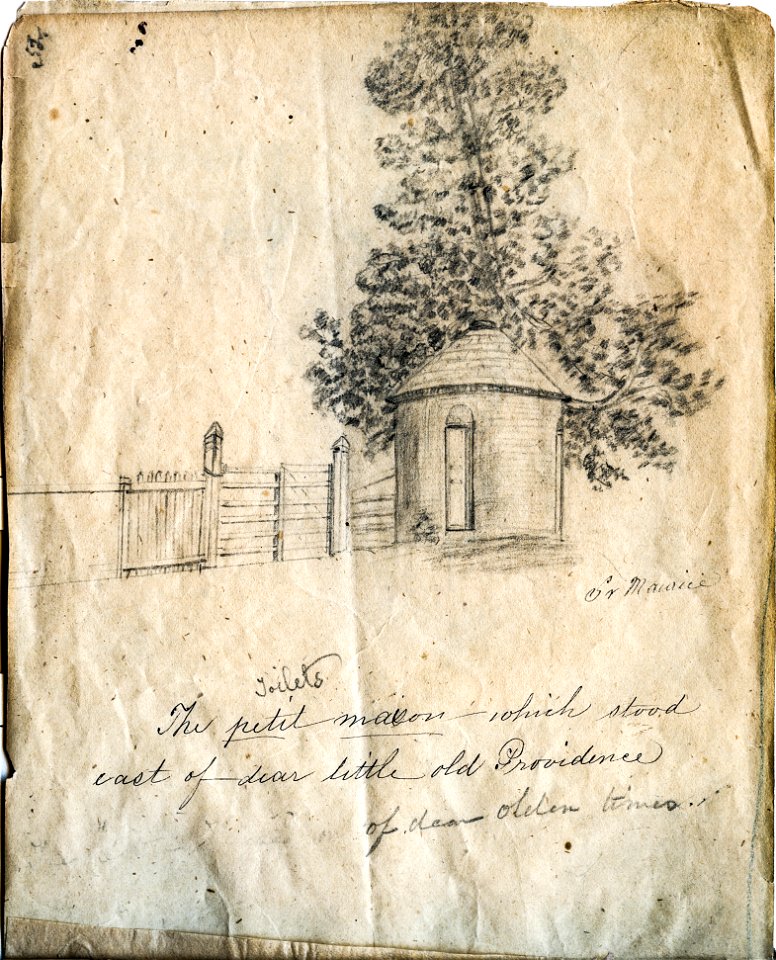 Sr Maurice
Toilets
The petit maison which stood
east of dear little old Providence
of dear olden times.